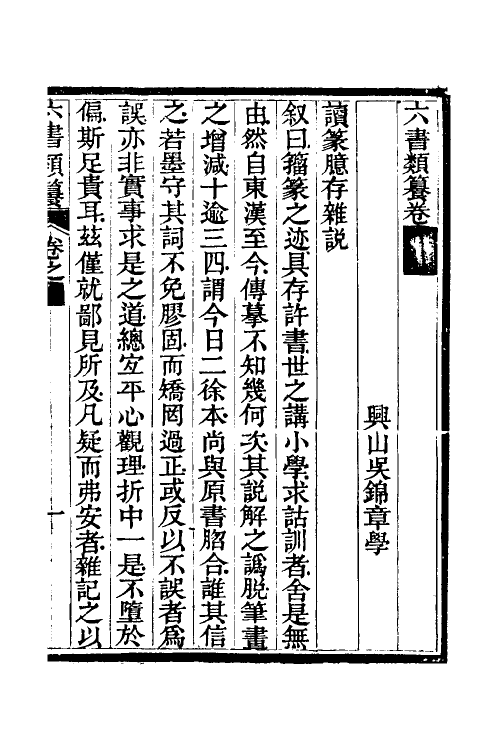 六書類籑卷
興山吳錦章學
讀篆臆存雜說
叙曰籀篆之迹具存許書世之講小學求詁訓者舍是無
由然自東漢至今傳摹不知幾何次其説解之譌脱筆畫
之增減十逾三四謂今日二徐本尚與原書脗合誰其信
之若墨守其詞不免膠固而矯罔過正或反以不誤者為
誤亦非實事求是之道總宜平心觀理折中一是不墮於
偏斯足貴耳茲僅就鄙見所及凡疑而弗安者雜記之以
六書類籑 卷之 一